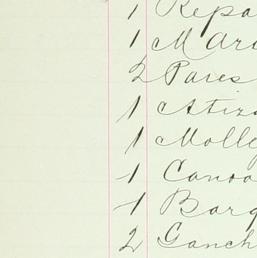 1 Repa
1 M Ara
2 Pares
1 Atiza
1 Molle
1 Canoa
1 Barq
2 Ganch